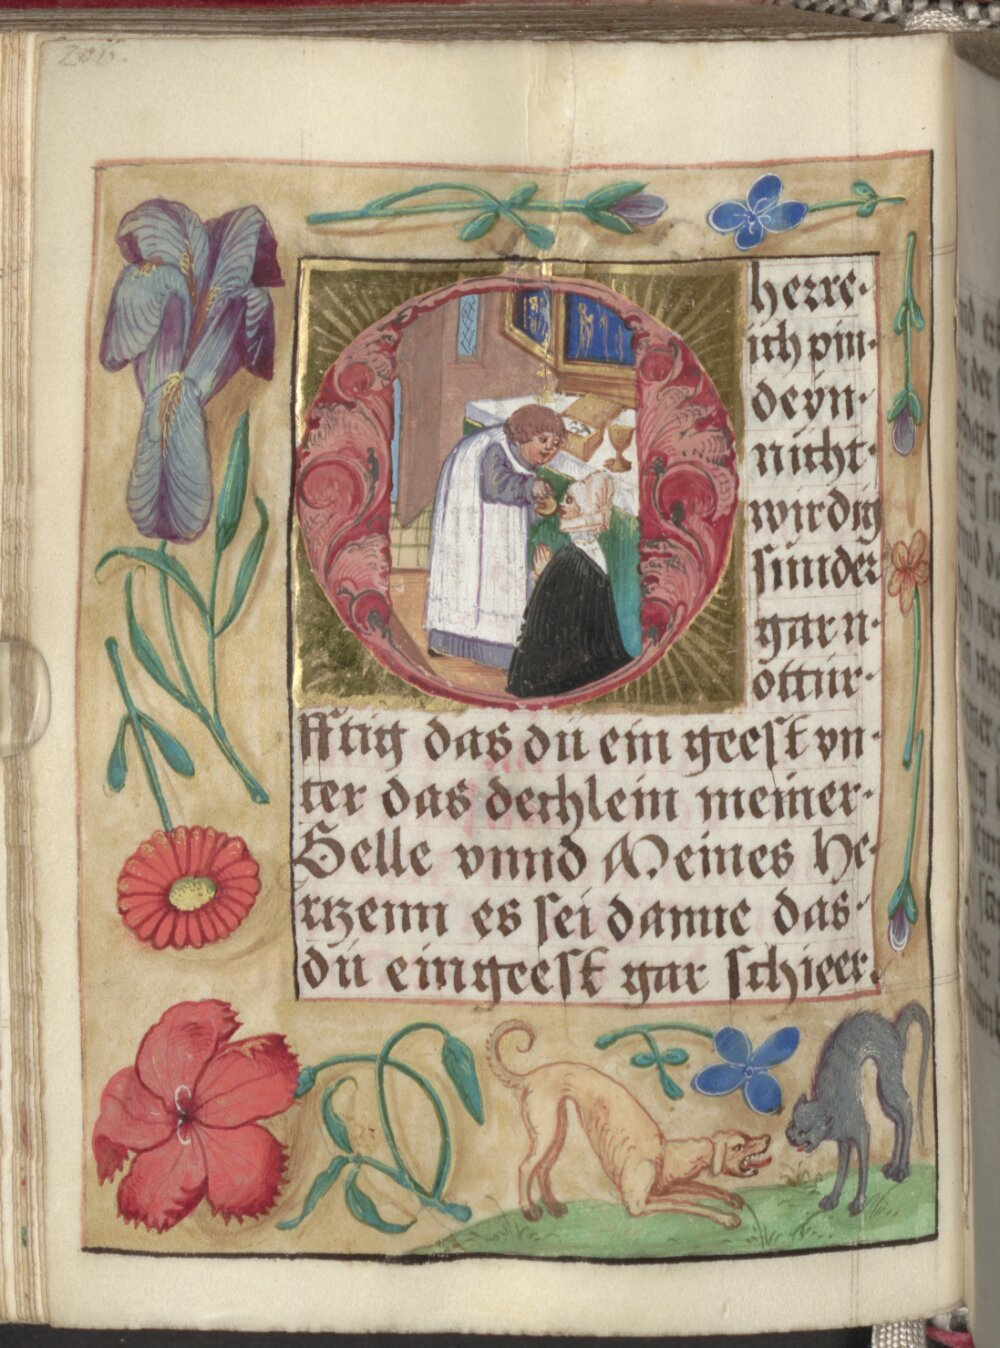 O
herre·
ich pin·
deÿn·
nicht·
wirdig
sunder
gar n·
ottür·
fftig das dü ein geest vn·
ter das dechlein meiner·
Selle vnnd Meines He·
rrzenn es sei danne das·
dü eingeest gar schieer.